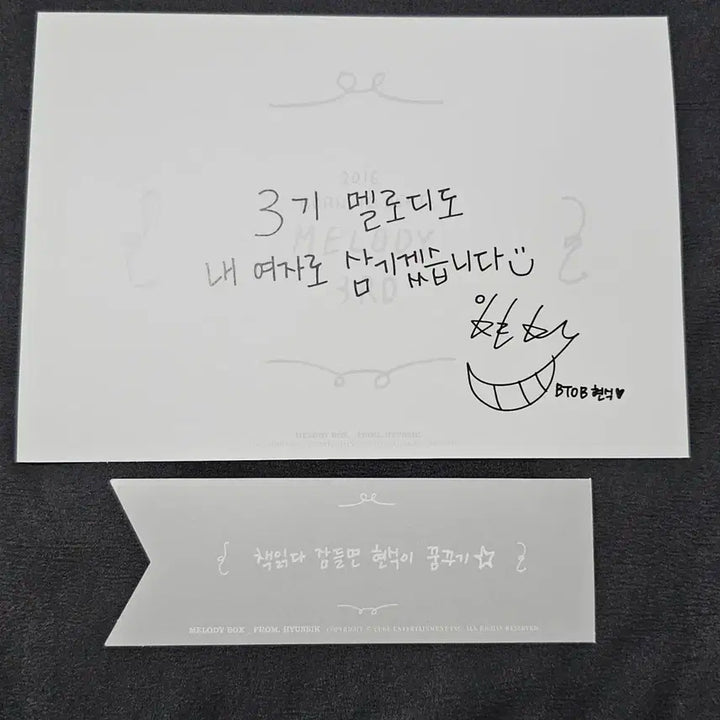 2016
3기 멜로디도
MELODY
내 여자로 삼기겠습니다
3RD
BTOB 현식♥
MELODY BOX _ FROM. HYUNSIK
책읽다 잠들면 현식이 꿈꾸기☆
MELODY BOX _ FROM. HYUNSIK COPYRIGHT © CUBE ENTERTAINMENT INC. ALL RIGHTS RESERVED.